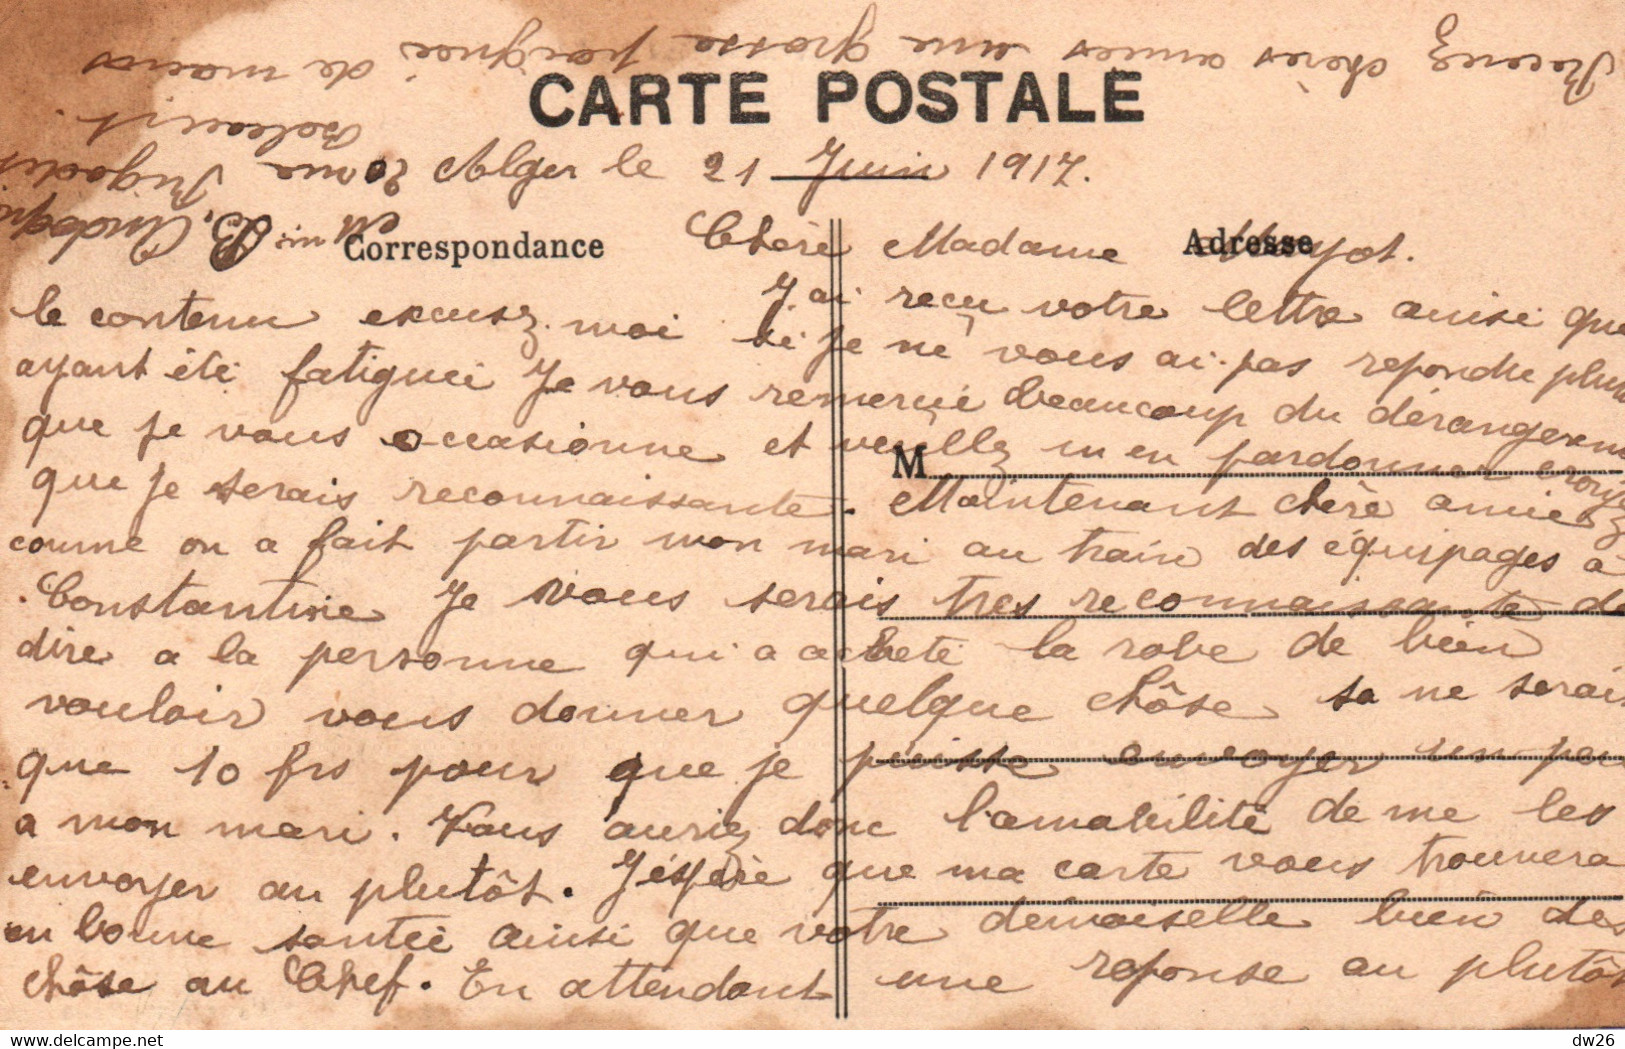 CARTE POSTALE
Alger le 21 Juin 1917.
Correspondance
Adresse
M
Chère Madame Mayot.
J'ai reçu votre lettre ainsi que
le contenu excusez moi si je ne vous ai pas repondu plus
ayant été fatiguée Je vous remercie beaucoup du dérangement
que je vous occasionne et veuillez m'en pardonner croyez
que je serais reconnaissante. Maintenant chère amie
comme on a fait partir mon mari au train des équipages à
Constantine Je vous serais tres reconnaissante de
dire a la personne qui a acheté la robe de bien
vouloir vous donner quelque chôse sa ne serais
que 10 frs pour que je puisse envoyer un peu
a mon mari. Vous auriez donc l'amabilité de me les
envoyer au plutôt. J'éspère que ma carte vous trouvera
en bonne santée ainsi que votre demoiselle bien des
chôse au Chef. En attendant une reponse au plutôt
Recevez chères amies une grosse poignée de mains
Mme B.
20 rue Rigodit
Belcourt.
dw26